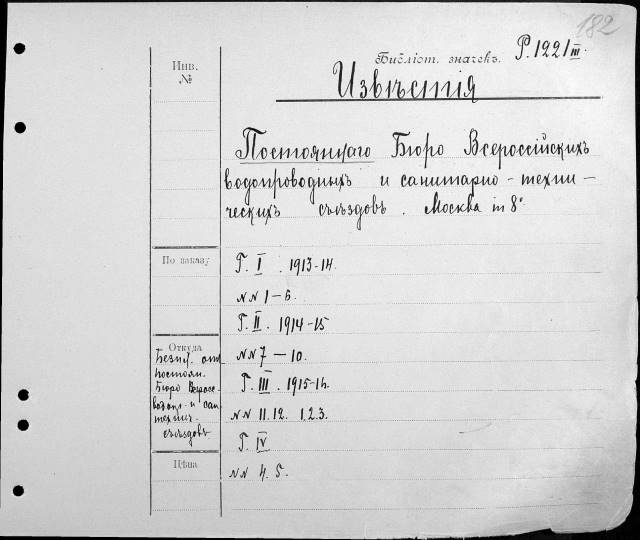 182
Библіот. значекъ. Р. 1221 III.
Инв. №
Извѣстія
Постояннаго Бюро Всероссійскихъ
водопроводныхъ и санитарно-техни-
ческихъ съѣздовъ. Москва in 8°
По заказу
Г. I. 1913-14.
NN 1-6.
Г. II. 1914-15
Откуда
NN 7-10.
Безпл. от
постоян.
Бюро Всеросс.
водопр. и сан.
технич.
съѣздовъ
Г. III. 1915-16.
NN 11.12. 1.2.3.
Г. IV
Цѣна
NN 4.5.